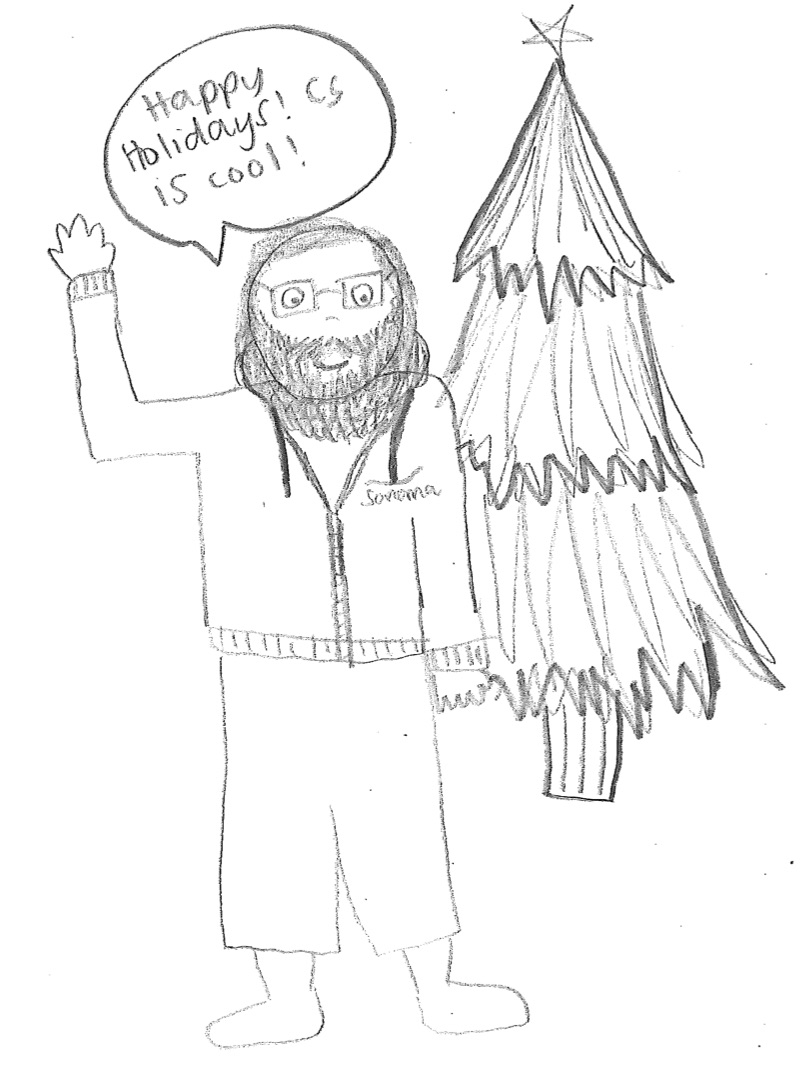 Happy
Holidays! CS
is cool!
Sonoma